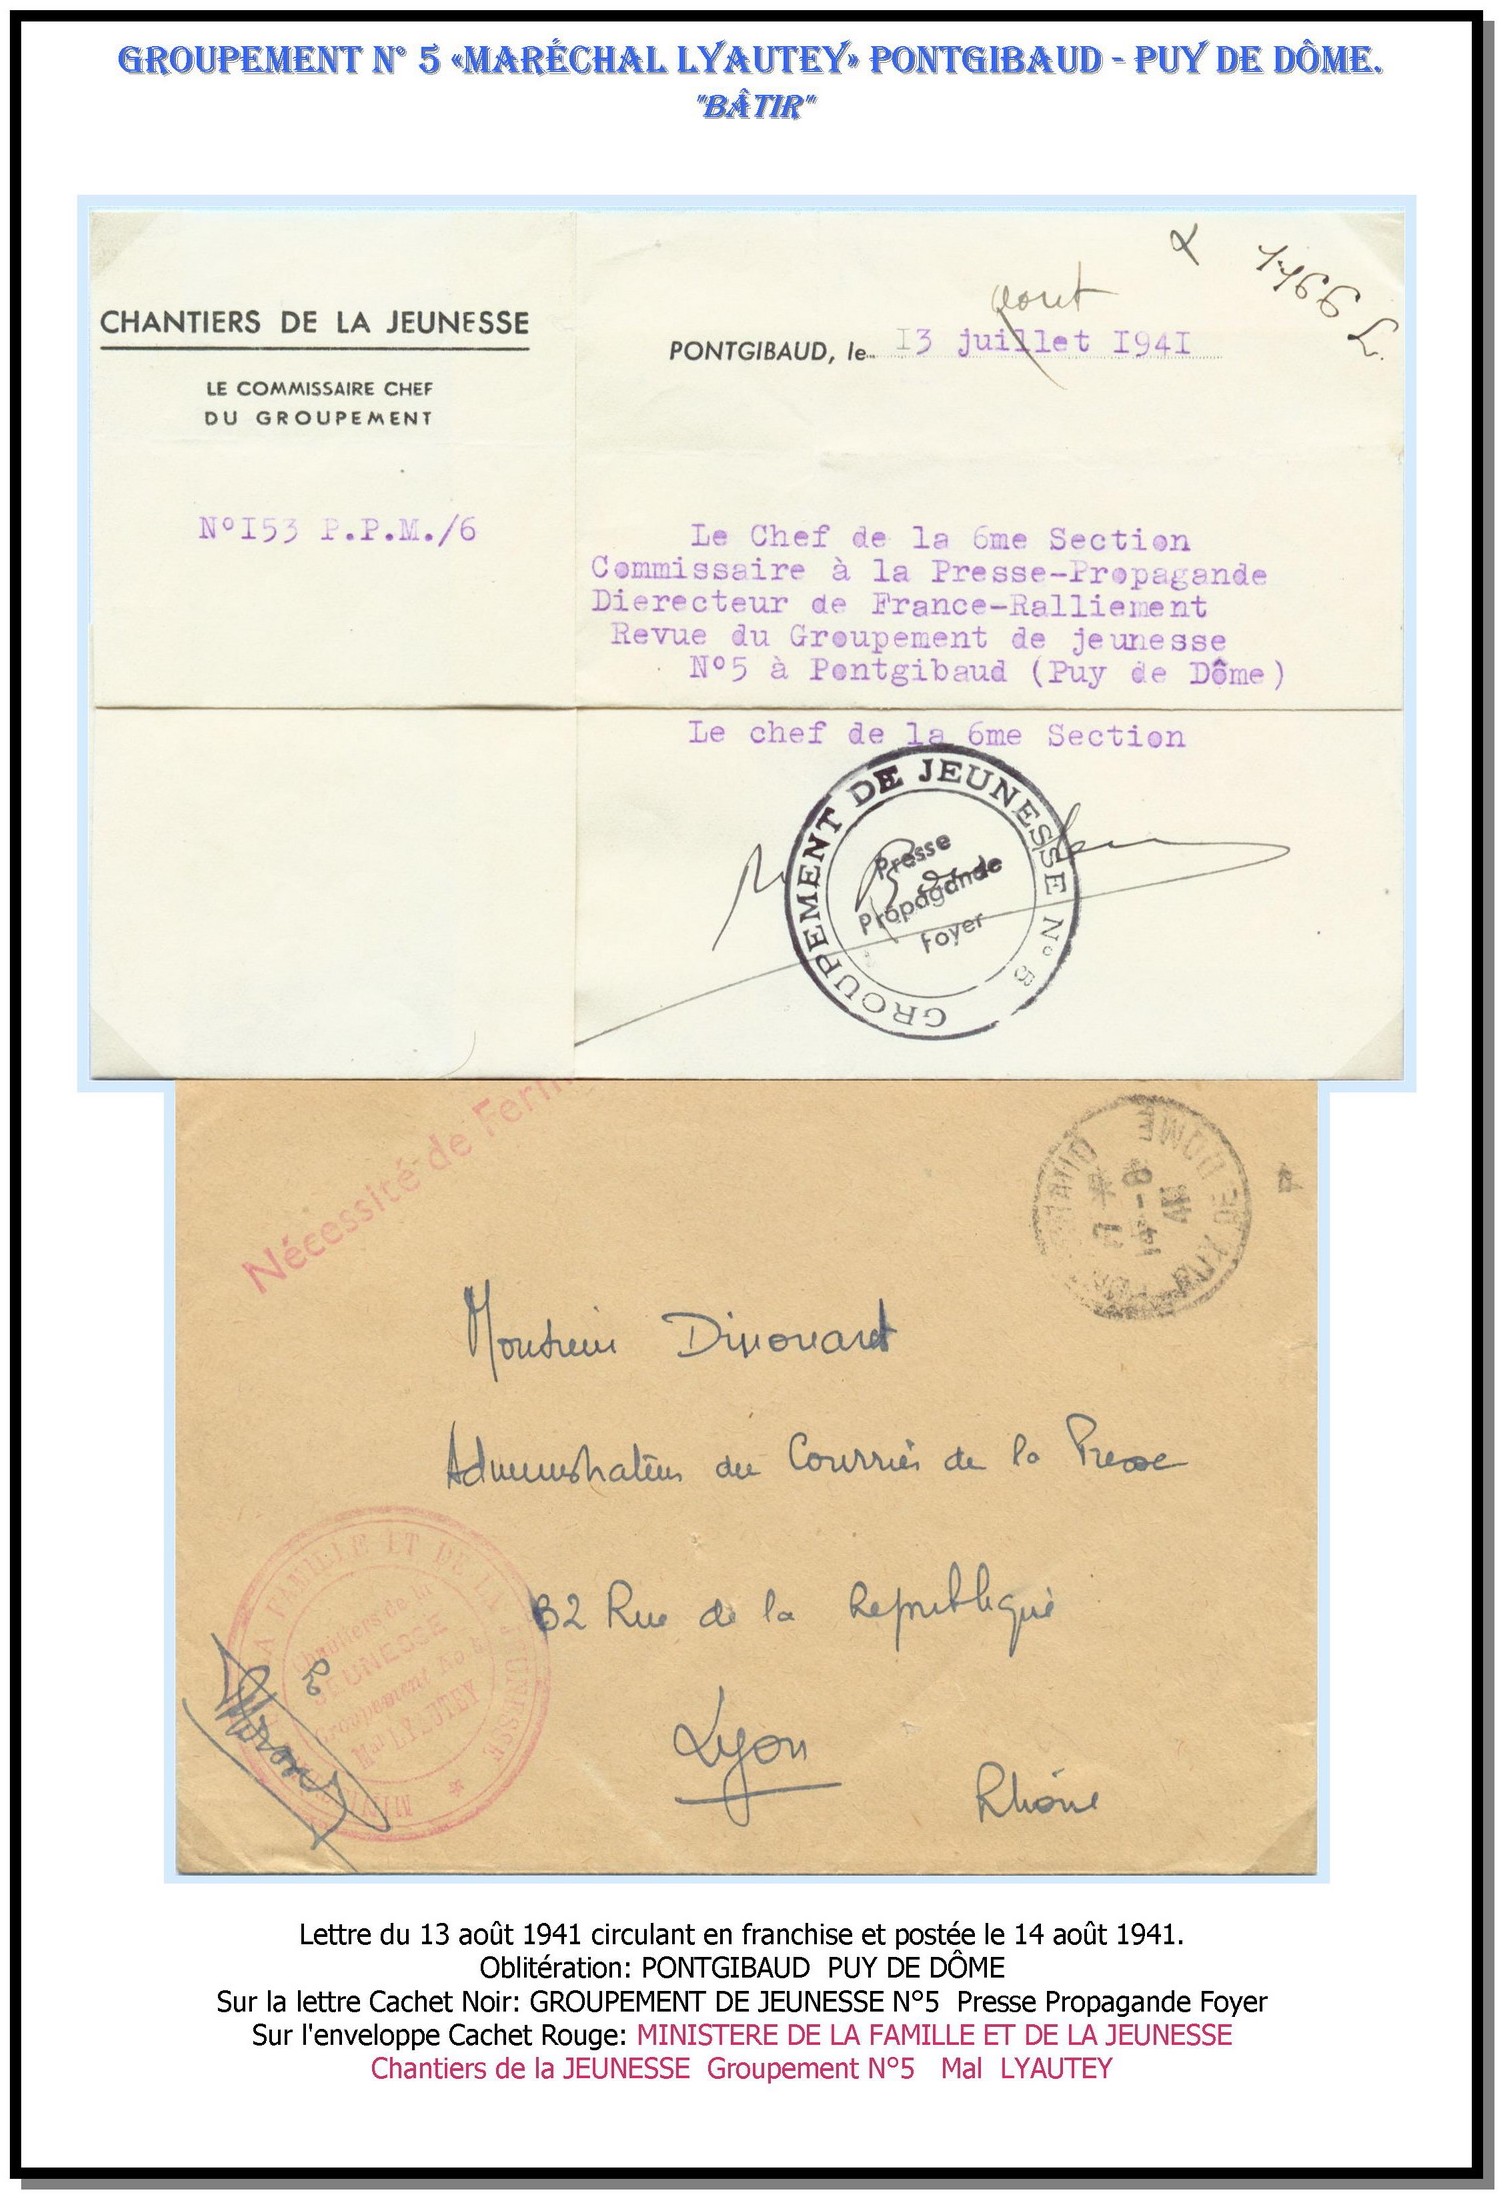 GROUPEMENT N° 5 «MARÉCHAL LYAUTEY» PONTGIBAUD - PUY DE DÔME.
"BÂTIR"
CHANTIERS DE LA JEUNESSE
LE COMMISSAIRE CHEF
DU GROUPEMENT
N°I53 P.P.M./6
1766 L.
aout
PONTGIBAUD, le I3 juillet I94I
Le Chef de la 6me Section
Commissaire à la Presse-Propagande
Dierecteur de France-Ralliement
Revue du Groupement de jeunesse
N°5 à Pontgibaud (Puy de Dôme)
Le chef de la 6me Section
GROUPEMENT DE JEUNESSE N° 5
Presse
Propagande
Foyer
Nécessité de Ferm
PUY DE DOME
14-8
41
Monsieur Dinouard
Administrateur du Courrier de la Presse
32 Rue de la République
Lyon
Rhône
MINISTERE DE LA FAMILLE ET DE LA JEUNESSE
Chantiers de la
JEUNESSE
Groupement No.5
Mal LYAUTEY
Lettre du 13 août 1941 circulant en franchise et postée le 14 août 1941.
Oblitération: PONTGIBAUD PUY DE DÔME
Sur la lettre Cachet Noir: GROUPEMENT DE JEUNESSE N°5 Presse Propagande Foyer
Sur l'enveloppe Cachet Rouge: MINISTERE DE LA FAMILLE ET DE LA JEUNESSE
Chantiers de la JEUNESSE Groupement N°5 Mal LYAUTEY